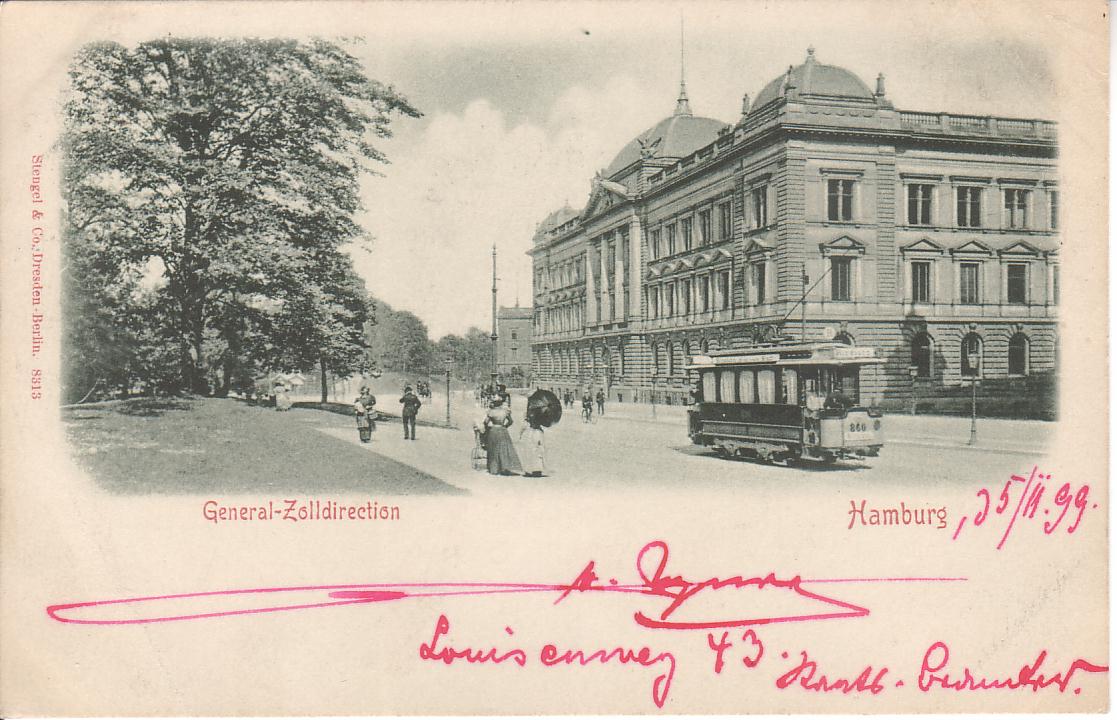 Stengel & Co., Dresden-Berlin. 8313
860
General-Zolldirection
Hamburg, 25/II.99.
Louisenweg 43.
Staats-Beamter.